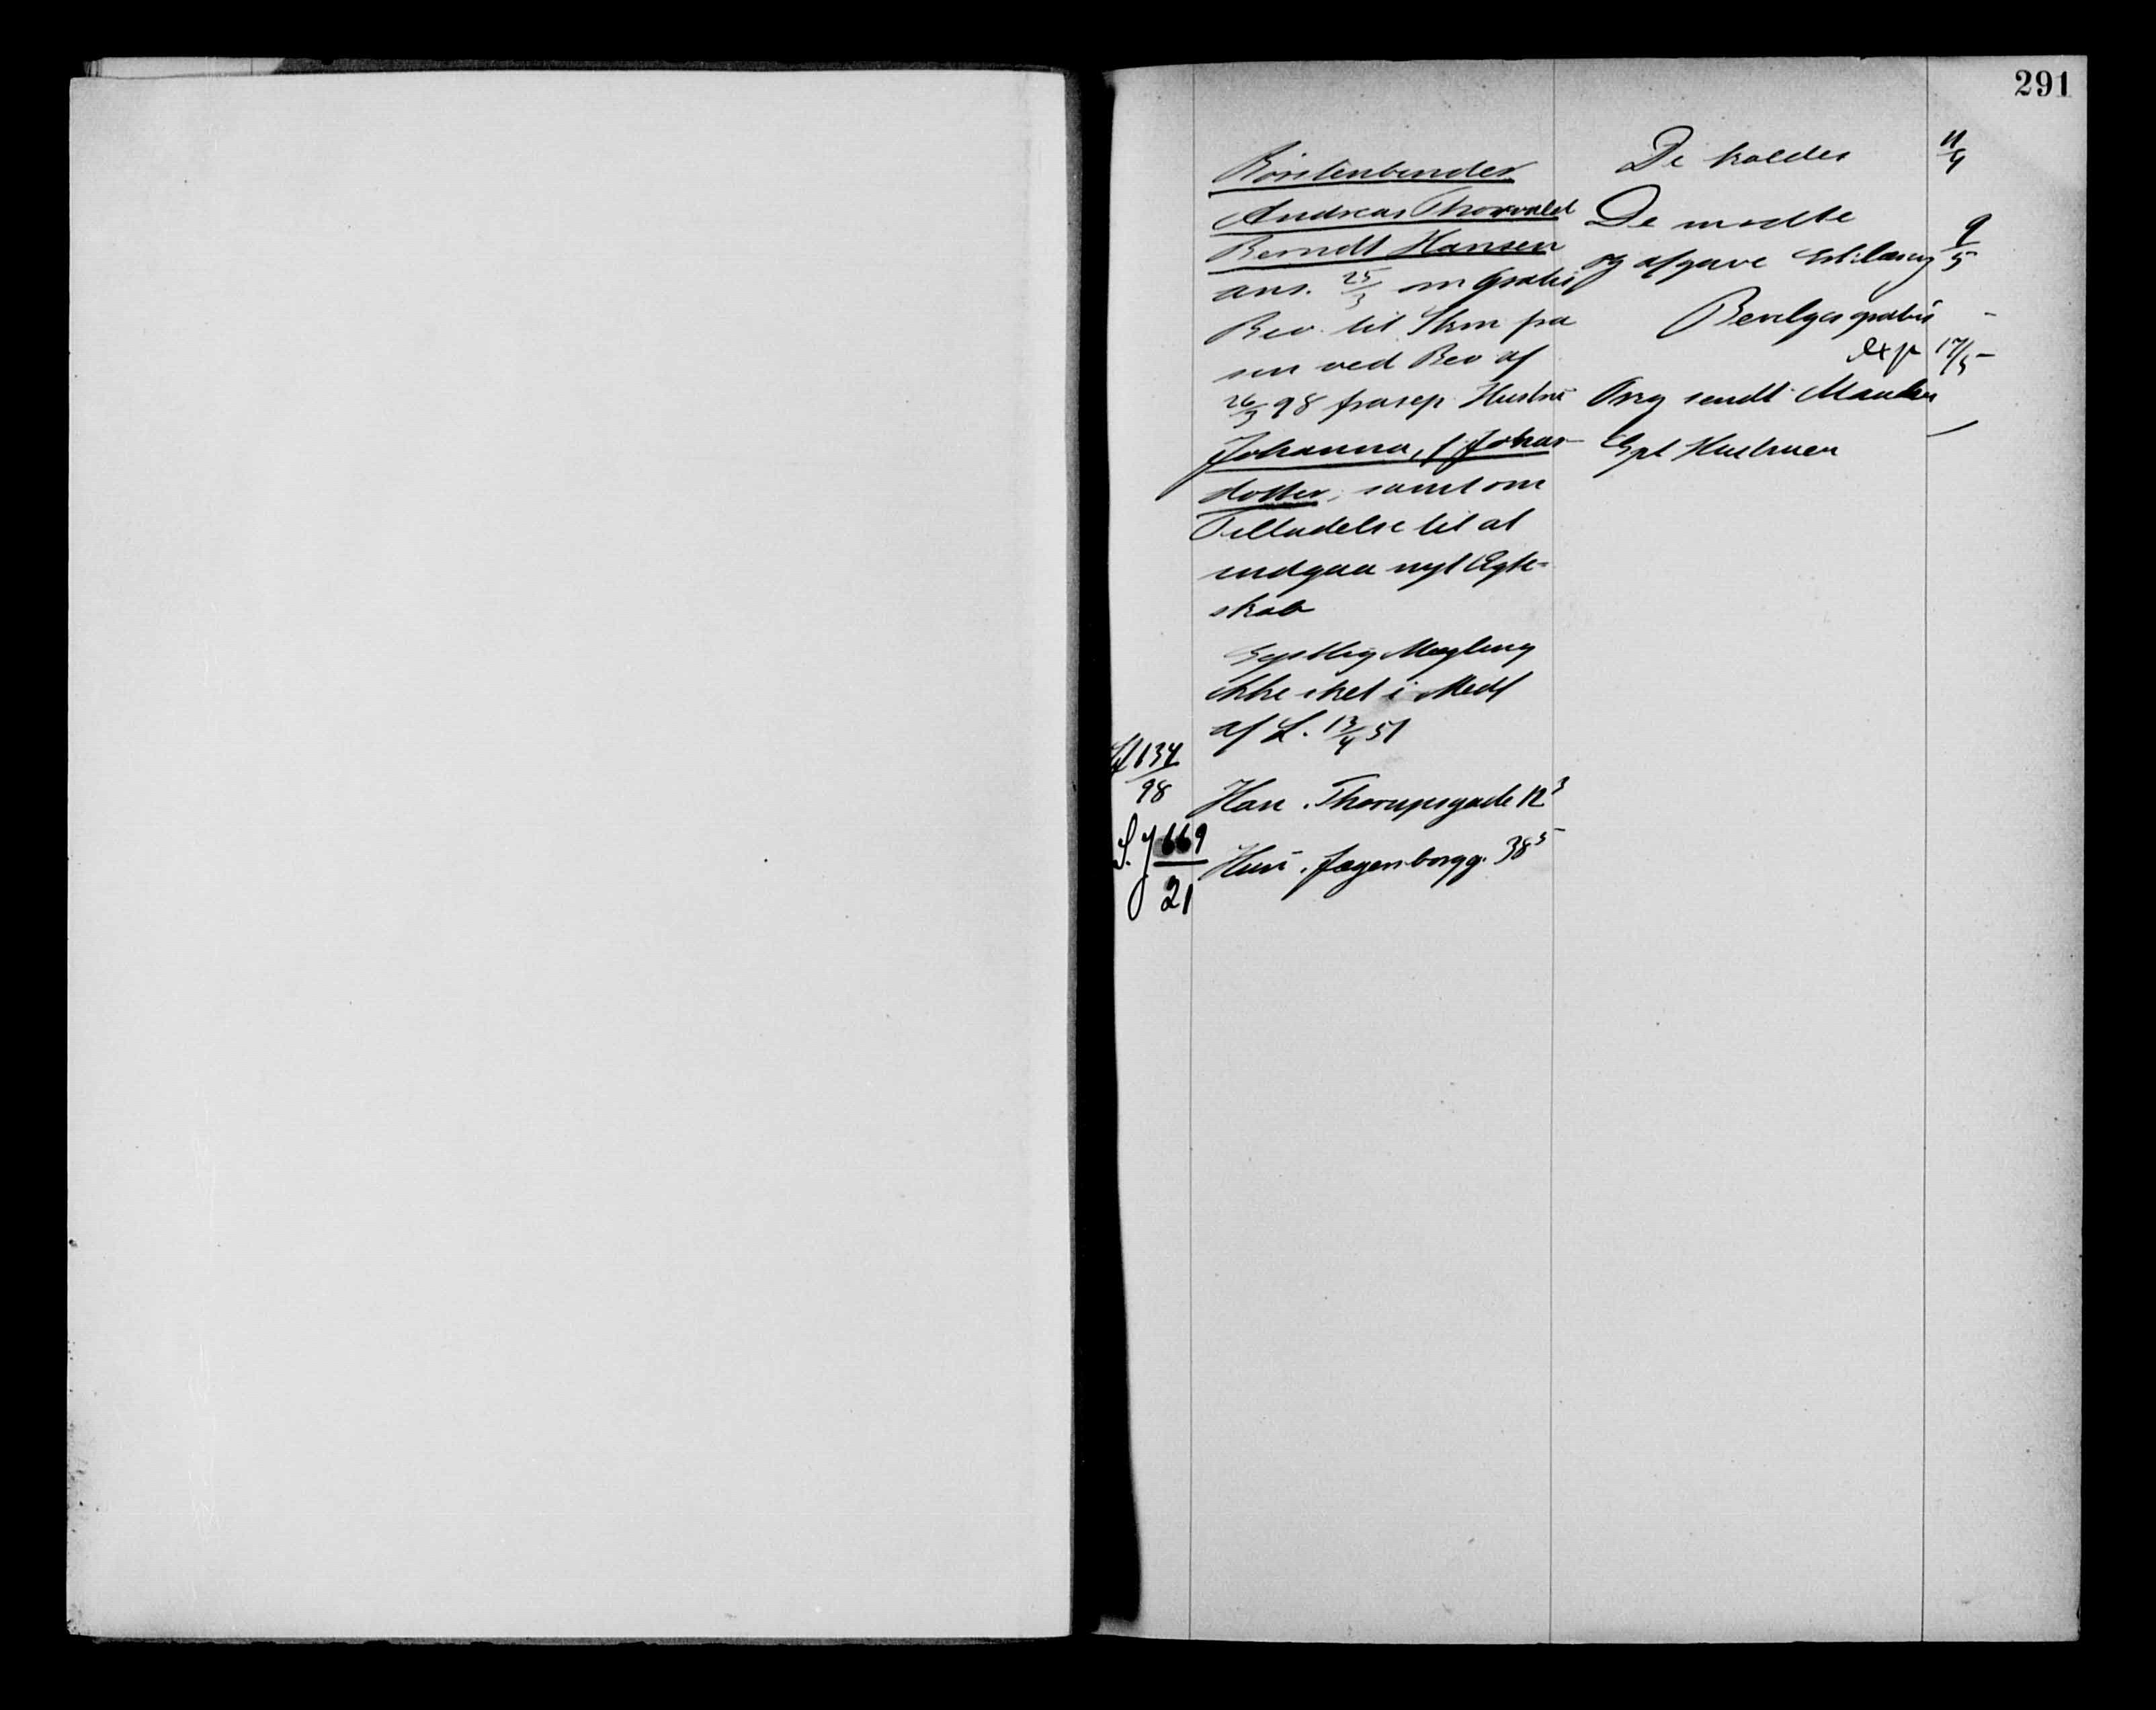 291
Börstenbinder
Andreas Thorvald
Berndt Hansen
ans. 25/3 om gratis
Bev. til Skm fra
sin ved Bev af
26/3 98 frasep. Hustru
Johanna, f. Johans-
dotter, samt om
Tilladelse til at
indgaa nyt Ægte-
skab
Gejstlig Mægling
ikke sket i Medf
af L. 13/4 51
134/98
Han. Thorupsgade 12 3
S. J 669/21
Hun. Jægersborgg. 38 5
De kaldes 11/4
De mødte
og afgave Erklæring 9/5
Bevilges gratis -
Exp 17/5
Org sendt Manden
Gpt Hustruen -